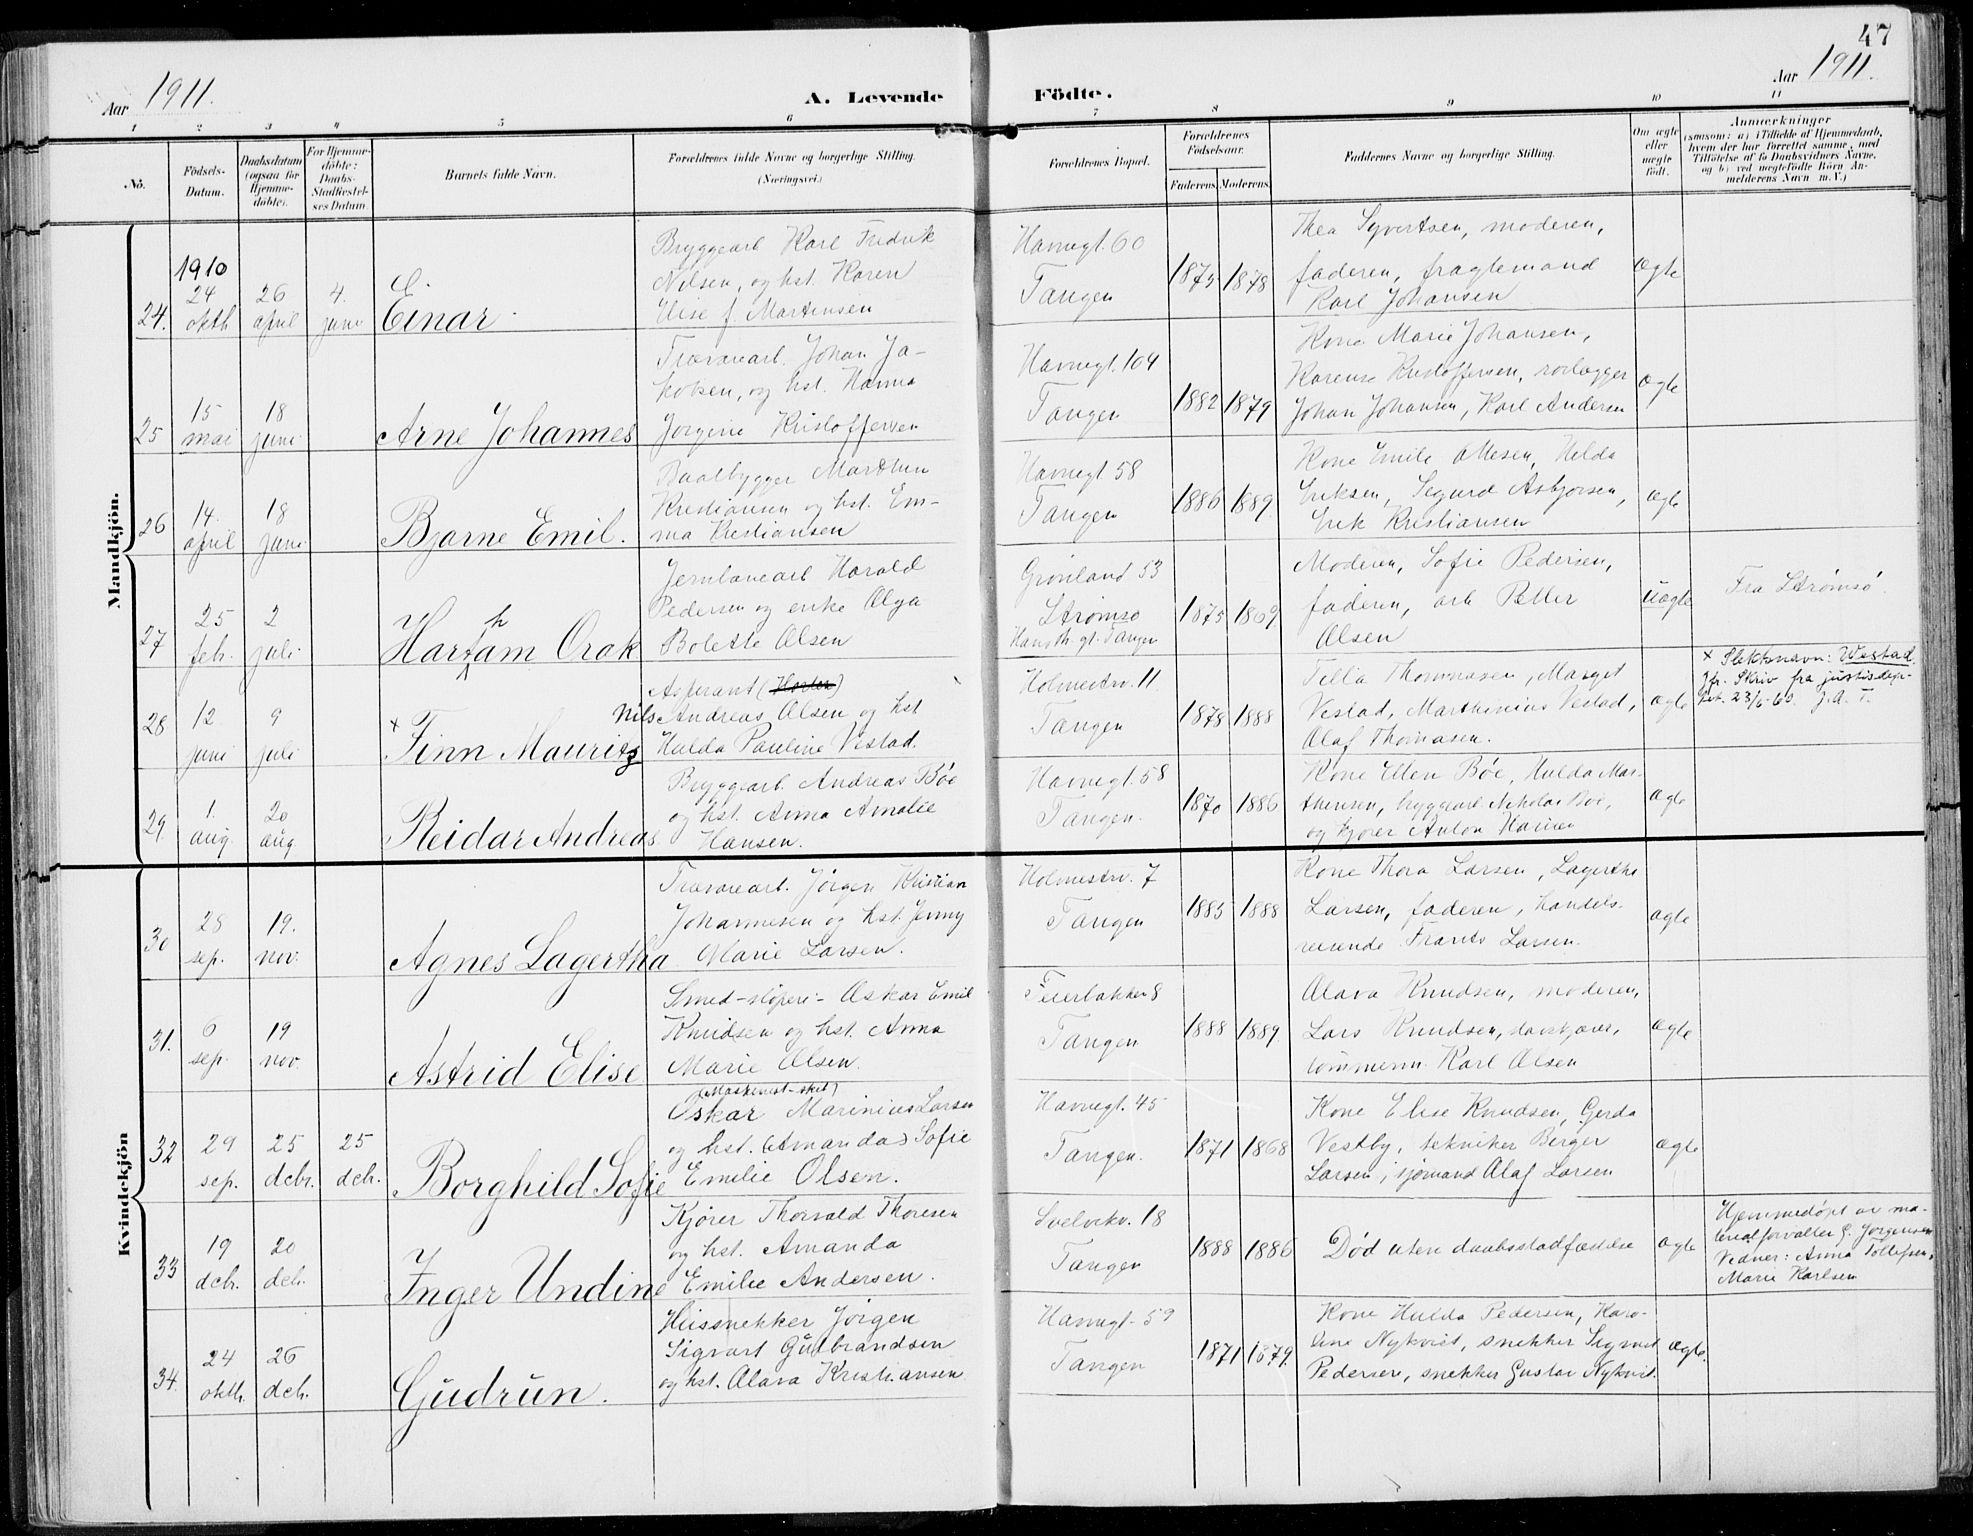 47
Aar 1911.
A. Levende Födte.
Aar 1911.
1 2 3 4 5 6 7 8 9 10 11
No.
Födsels-Datum.
Daabsdatum (ogsaa for Hjemmedöbte).
For Hjemmedöbte: Daabs-Stadfæstelses Datum.
Barnets fulde Navn.
Forældrenes fulde Navne og borgerlige Stilling.
(Næringsvei.)
Forældrenes Bopæl.
Forældrenes Födselsaar.
Faderens. Moderens.
Faddernes Navne og borgerlige Stilling.
Om ægte eller uægte födt.
Anmærkninger
(saasom: a) i Tilfælde af Hjemmedaab, hvem der har forrettet samme, med Tilföielse af to Daabsvidners Navne, og b) ved uægtefödte Börn Anmelderens Navn m. V.)
Mandkjön.
24. 1910 24 oktb 26 april 4. juni Einar
Bryggearb Karl Fredrik
Nilsen, og hst. Karen
Elise f. Martinsen
Havnegt. 60
Tangen
1875 1878
Thea Syvertsen, moderen,
faderen, fragtemand
Karl Johansen
ægte
25 15 mai 18 juni Arne Johannes
Trævarearb. Johan Ja-
kobsen, og hst. Hanna
Jørgine Kristoffersen
Havnegt. 104
Tangen
1882 1879
Kone Marie Johansen,
Karense Kristoffersen, rørlægger
Johan Johansen, Karl Andersen
ægte
26 14. april 18 juni Bjarne Emil.
Baatbygger Marthin
Kristiansen og hst. Em-
ma Kristiansen
Havnegt 58
Tangen
1886 1889
Kone Emile Olesen, Helda
Eriksen, Sigurd Asbjørsen,
Erik Kristiansen
ægte
27 25 feb. 2 juli Hartham Orak
Jernbanearb Harald
Pedersen og enke Olga
Bolette Olsen
Grønland 53
Strømsø
Havneh. gt. Tangen
1875 1869
Moderen, Sofie Pedersen,
faderen, arb Petter
Olsen
uægte
Fra Strømsø.
28 12. juni 9 juli × Finn Mauritz
Asperant (Horten)
Nils Andreas Olsen og hst
Hulda Pauline Vestad.
Holmestrv. 11
Tangen
1878 1888
Tilla Thommasen, Marget
Vestad, Marthinius Vestad,
Olaf Thomasen.
ægte
× Slektsnavn: Westad.
Jfr. Skriv fra justisdep-
tet. 23/6-60. J.A.T.
29. 1. aug. 20 aug Reidar Andreas
Bryggearb. Andreas Böe
og hst. Anna Amalie
Hansen.
Havnegt. 58
Tangen.
1870 1886
Kone Ellen Böe, Hulda Mar-
thinsen, bryggearb Nicholai Böe,
og kjører Anton Hansen
ægte
Kvindekjön
30 28 sep. 19. nov. Agnes Lagertha
Trævarearb. Jörgen Kristian
Johannesen og hst. Jenny
Marie Larsen.
Holmestrv. 7
Tangen
1885 1888
Kone Thora Larsen, Lagertha
Larsen, faderen, handels-
reisende Frants Larsen.
ægte
31. 6 sep. 19 nov. Astrid Elise
Smed-støperi- Oskar Emil
Knudsen og hst. Anna
Marie Olsen.
Feierbakken 8
Tangen
1888 1889
Olava Knudsen, moderen,
Lars Knudsen,
tømmerm. Karl Olsen
ægte
32 29 sep. 25 debr. 25 deb. Borghild Sofie
(Maskinist-skib)
Oskar Marinius Larsen
og hst. (Amanda) Sofie
Emilie Olsen.
Havnegt. 45
Tangen.
1871 1868
Kone Elise Knudsen, Gerda
Vestby, tekniker Birger
Larsen, sjømand Olaf Larsen
ægte
33 19 debr. 20 deb. Inger Undine
Kjører Thorvald Thoresen
og hst. Amanda
Emilie Andersen.
Svelvikv. 18
Tangen
1888 1886
Død uten daabsstadfæstelse
ægte
Hjemmedøpt av ma-
terialforvalter G. Jørgensen
Vidner: Anna Tollefsen,
Marie Karlsen
34. 24 oktb. 26 deb. Gudrun.
Hussnekker Jörgen
Sigvart Gulbrandsen
og hst. Olava Kristiansen
Havnegt- 59
Tangen
1871 1879.
Kone Hulda Pedersen, Karo-
line Nykvist, snekker Sigvart
Pedersen, snekker Gustav Nykvist.
ægte.